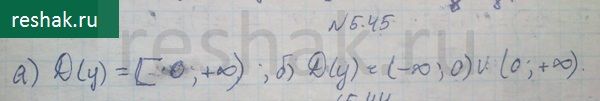 reshak.ru
№5.45
а) D(y) = [0; +∞); б) D(y) = (-∞; 0) ∪ (0; +∞).